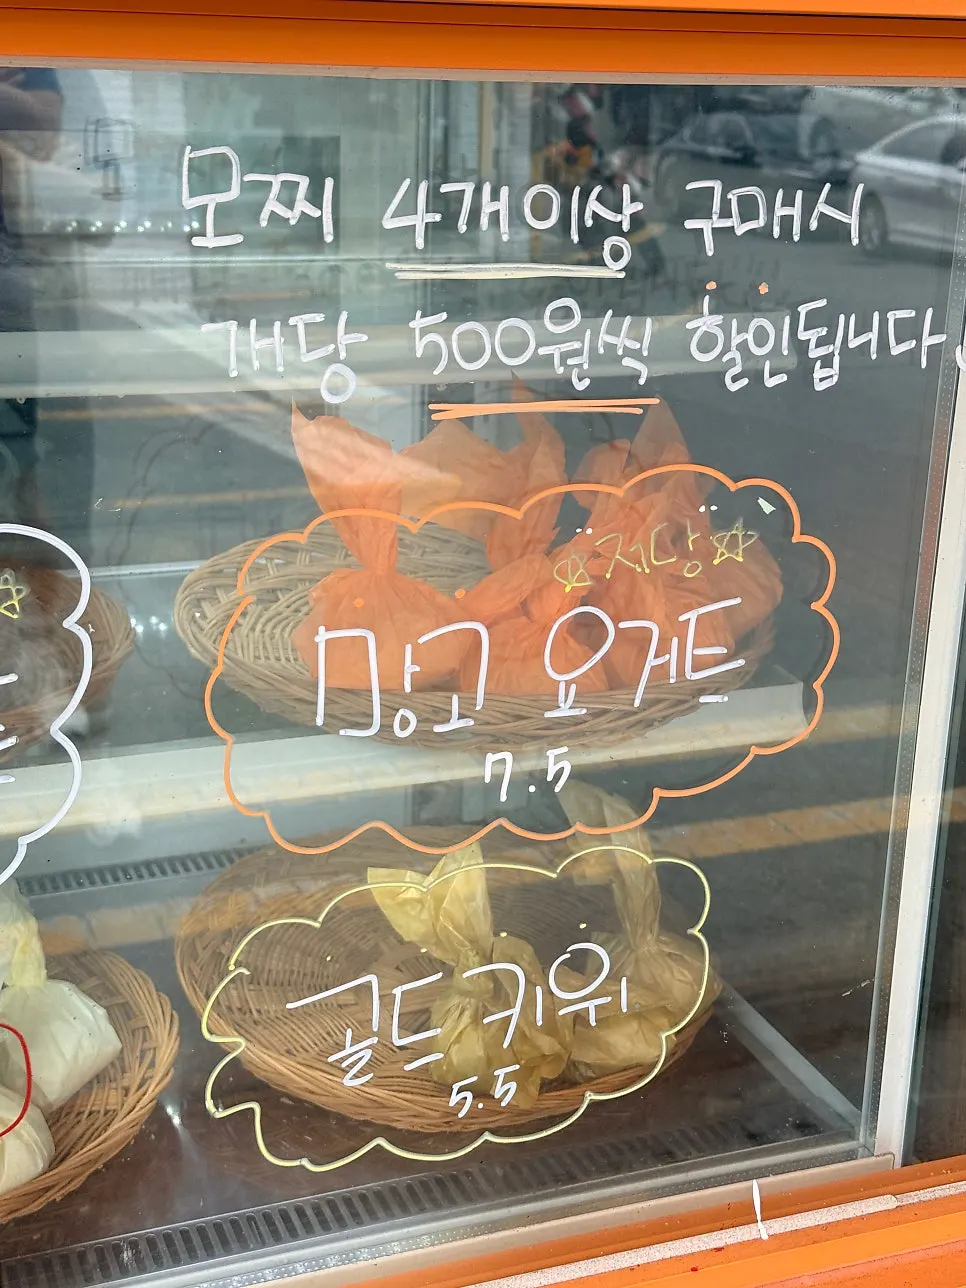 모찌 4개이상 구매시
개당 500원씩 할인됩니다.
☆저당☆
망고 요거트
7.5
골드키위
5.5